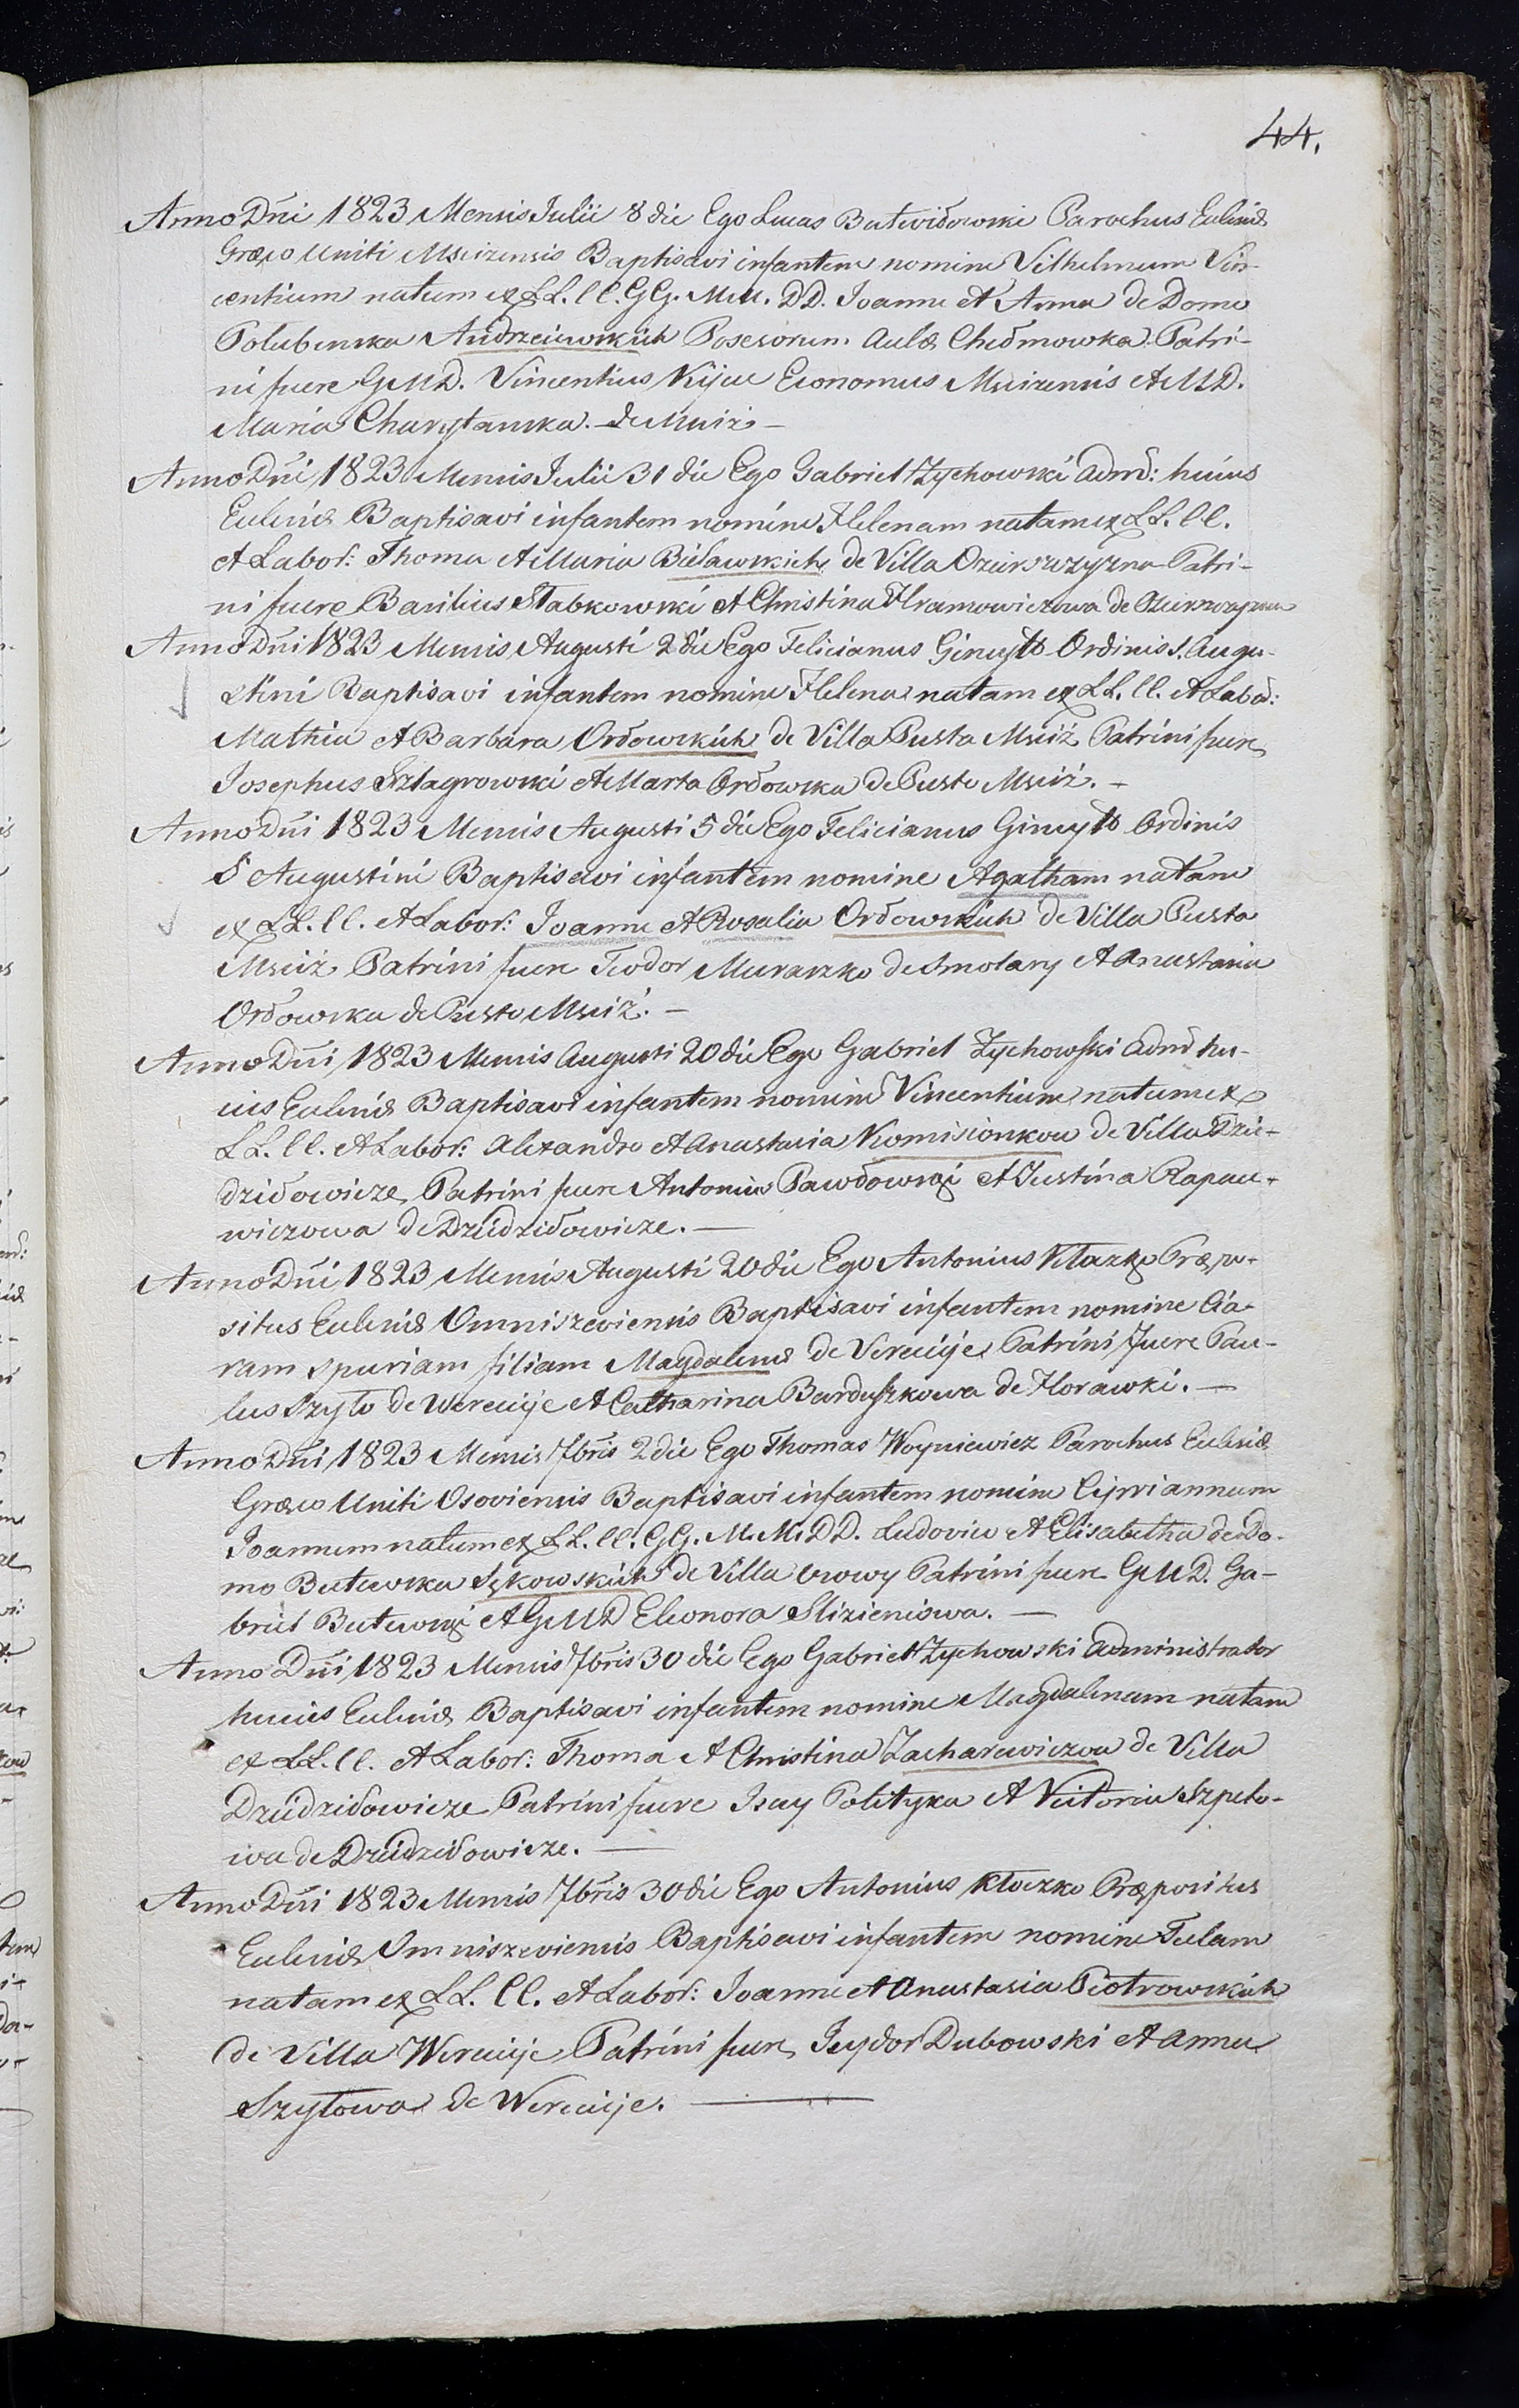 44.
Anno Dni 1823 Mensis Julii 8 die Ego Lucas Butwiłowski Parochus Eclesiæ
Græco Uniti Mscizensis Baptisavi infantem nomine Vilhelmum Vin-
centium natum ex LL. CC. GG. MM. DD. Joanne et Anna de Domo
Polubinska Andrzeiewskich Posesorum Aulæ Chełmowka Patri-
ni fuere GMD. Vincentius Kijuc Economus Mscizensis et MD.
Maria Charytanska. de Msciż
Anno Dni 1823 Mensis Julii 31 die Ego Gabriel Zychowski Admr: huius
Eclesiæ Baptisavi infantem nomine Helenam natam ex LL. CC.
et Labor: Thoma et Maria Bielawskich de Villa Patri-
ni fuere Basilius Stabkowski et Christina Hramowiczowa de
Anno Dni 1823 Mensis Augusti 2 die Ego Felicianus Gineyt Ordinis S. Augu-
stini Baptisavi infantem nomine Helena natam ex LL. CC. et Labor:
Mathia et Barbara Orłowskich de Villa Pusta Msciż Patrini fuere
Josephus Szlagrowski et Marta Orłowska de Pusto Msciż.
Anno Dni 1823 Mensis Augusti 5 die Ego Felicianus Gineyt Ordinis
S Augustini Baptisavi infantem nomine Agatham natam
ex LL. CC. et Labor: Joanne et Rosalia Orłowskich de Villa Pusta
Msciż Patrini fuere Teodor Muraszko de Smolary et Anastasia
Orłowska de Pusto Msciż.
Anno Dni 1823 Mensis Augusti 20 die Ego Gabriel Zychowski Admr hu-
ius Eclesiæ Baptisavi infantem nomine Vincentium natum ex
LL. CC. et Labor: Alexandro et Anastasia Komisionkow de Villa Dzie-
dziłowicze Patrini fuere Antonius Pawłowski et Justina Rapace-
wiczowa de Dziedziłowicze.
Anno Dni 1823 Mensis Augusti 20 die Ego Antonius Kłaczko Præpo-
situs Eclesiæ Omniszeviensis Baptisavi infantem nomine Cla-
ram spuriam filiam Magdalenæ de Vereicije Patrini fuere Pau-
lus Szyło de Wereicije et Catharina Barduszkowa de Horawki.
Anno Dni 1823 Mensis 7bris 2 die Ego Thomas Woyniewicz Parochus Eclesiæ
Græco Uniti Osoviensis Baptisavi infantem nomine Ciprianum
Joannem natum ex LL. CC. GG. M.M. DD. Ludovico et Elisabetha de Do-
mo Butewska Sękowskich de Villa Patrini fuere GMD. Ga-
briel Butewski et GMD Eleonora Slizieniowa.
Anno Dni 1823 Mensis 7bris 30 die Ego Gabriel Zychowski Administrator
huius Eclesiæ Baptisavi infantem nomine Magdalenam natam
ex LL. CC. et Labor: Thoma et Christina Zacharewiczow de Villa
Dziedziłowicze Patrini fuere Isay Polityka et Victoria Szpeto-
wa de Dziedziłowicze.
Anno Dni 1823 Mensis 7bris 30 die Ego Antonius Kłoczko Præpositus
Eclesiæ Omniszeviensis Baptisavi infantem nomine Teclam
natam ex LL. CC. et Labor: Joanne et Anastasia Piotrowskich
de Villa Wereicije Patrini fuere Izydor Dubowski et Anna
Szyłowa de Wereicije.